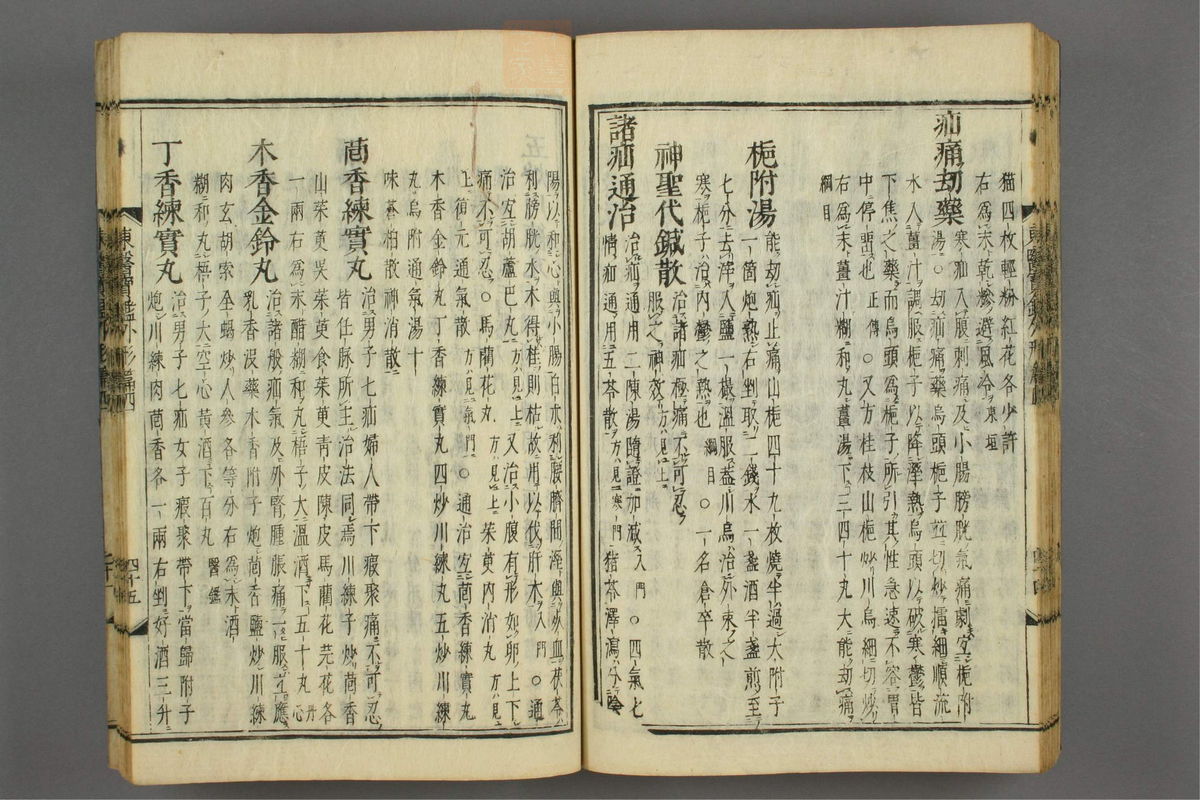 猫四枚輕粉紅花各少許
右爲末乾糝選風冷東垣
疝痛劫藥
湯○劫疝痛藥烏頭梔子並切炒擂細順流
寒疝入腹刺痛及小腸膀胱氣痛劇宜梔附
水入薑汁調服梔子以降濕熱烏頭以破寒鬱皆
下焦之藥而烏頭爲梔子所引其性急速不容胃
中停畱也正傳○又方桂枝山梔炒川烏細切炒
右爲末薑汁糊和丸薑湯下三四十丸大能劫痛
綱目
梔附湯
能劫疝止痛山梔四十九枚燒半過大附子
一箇炮熟右剉取二錢水一盞酒半盞煎至
七分去滓入鹽一撮溫服盖川烏治外束之
寒梔子治內鬱之熱也綱目○一名倉卒散
神聖代鍼散
治諸疝極痛不可忍
服之神效方見上
諸疝通治
治疝通用二陳湯隨證加減入門○四氣七
情疝通用五苓散方見寒門猪苓澤瀉分陰
陽以和心與小腸白朮利腰臍間濕與死血茯苓
利膀胱水木得桂則枯故用以伐肝木入門○通
治宜胡蘆巴丸方見上又治小腹有形如卵上下
痛不可忍○馬藺花丸方見上茱萸內消丸方見
上復元通氣散方見氣門○通治宜茴香練實丸
木香金鈴丸丁香練實丸四炒川練丸五炒川練
丸烏附通氣湯十
味蒼栢散神消散
茴香練實丸
治男子七疝婦人帶下瘕聚痛不可忍
皆任脉所主治法同焉川練子炒茴香
山茱萸吳茱萸食茱萸靑皮陳皮馬藺花芫花各
一兩右爲末醋糊和丸梧子大溫酒下五十丸丹心
木香金鈴丸
治諸般疝氣及外腎腫脹痛一服立應
乳香沒藥木香附子炮茴香鹽炒川練
肉玄胡索全蝎炒人參各等分右爲末酒
糊和丸梧子大空心黃酒下百丸醫鑑
丁香練實丸
治男子七疝女子瘕聚帶下當歸附子
炮川練肉茴香各一兩右剉好酒三升
東醫寶鑑外形篇四
四十五